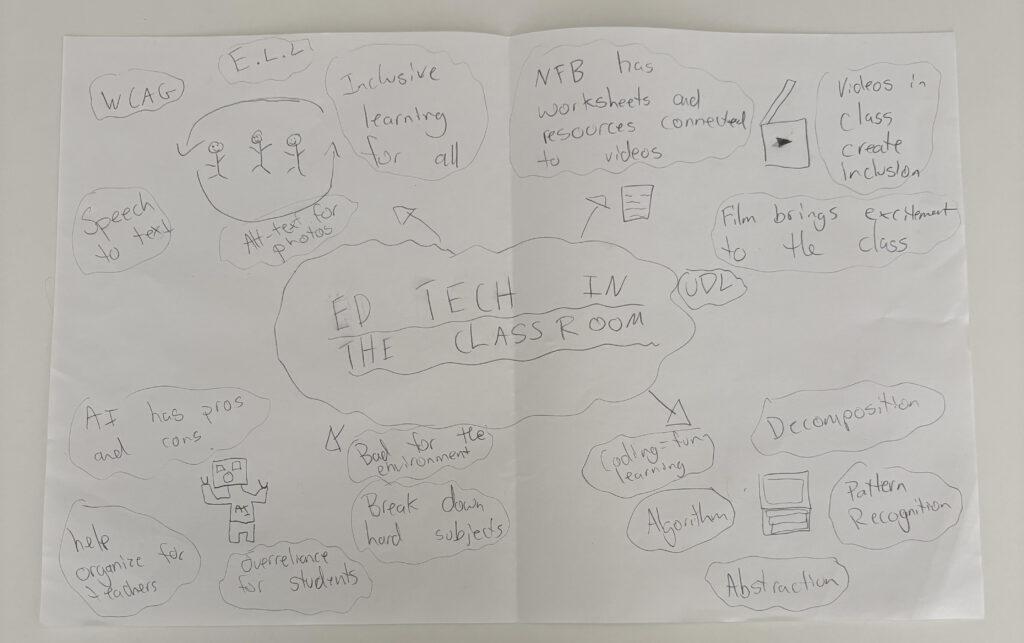 ED TECH IN
THE CLASSROOM
UDL
WCAG
E.L.L
Inclusive
learning
for all
Speech
to text
Alt-text for
photos
NFB has
worksheets and
resources connected
to videos
Videos in
class
create
inclusion
Film brings excitement
to the class
AI has pros
and cons
AI
help
organize for
teachers
Overreliance
for students
Bad for the
environment
Break down
hard subjects
Coding=fun
learning
Algorithm
Decomposition
Pattern
Recognition
Abstraction